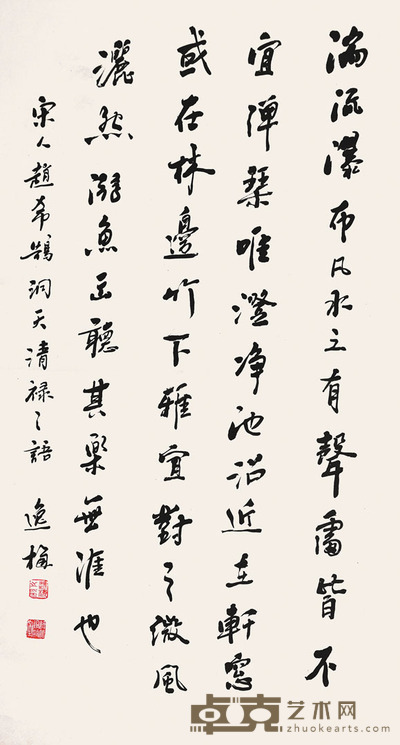 湍流瀑布凡水之有聲處皆不
宜彈琴唯澄净池沼近在軒窓
或在林邊竹下雅宜對之微風
灑然游魚出聽其樂無涯也
宋人趙希鵠洞天清禄之語 逸梅
卓克艺术网
zhuokearts.com